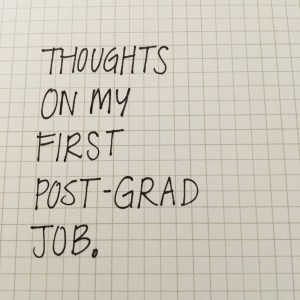 THOUGHTS
ON MY
FIRST
POST-GRAD
JOB.